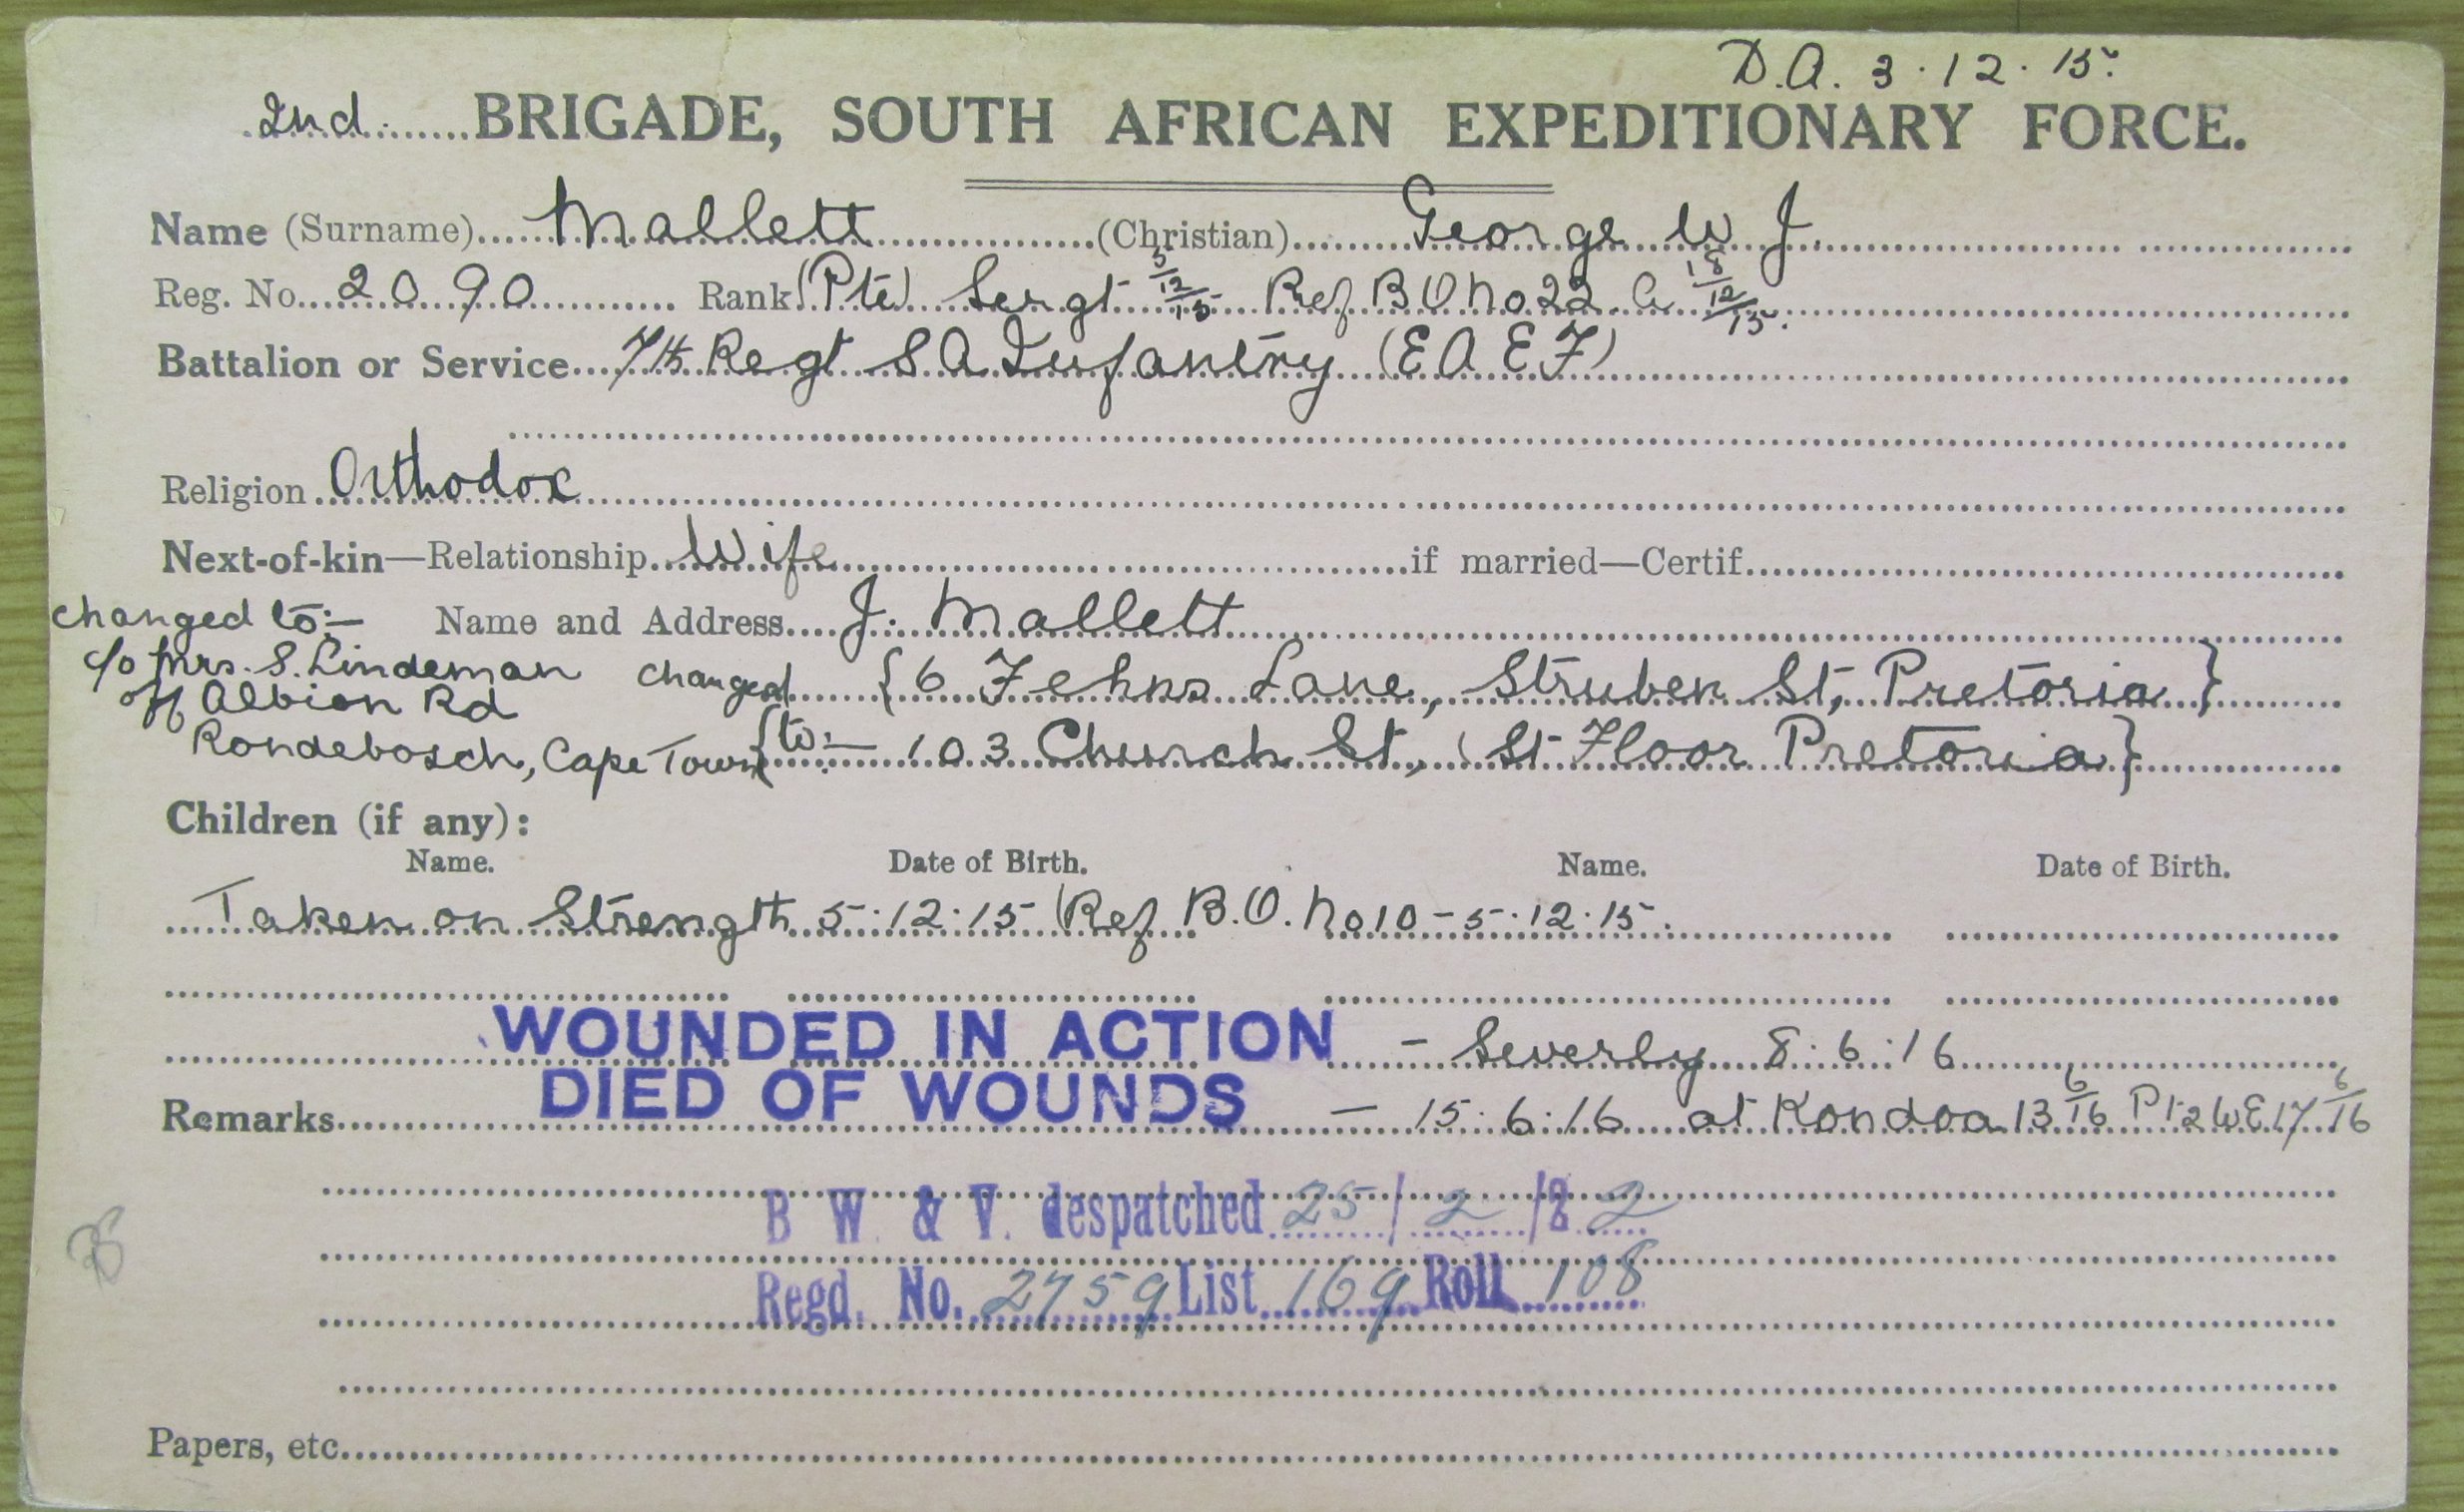 D.A. 3.12.15.
2nd. BRIGADE, SOUTH AFRICAN EXPEDITIONARY FORCE.
Name (Surname) Mallett (Christian) George W J.
Reg. No. 2090 Rank (Pte) Sergt 5/12/15 Ref B O No 22. a 18/12/15.
Battalion or Service 7th Regt S A Infantry (E A E F)
Religion Orthodox
Next-of-kin—Relationship Wife if married—Certif.
Name and Address J. Mallett
changed {6 Fehrs Lane, Struben St, Pretoria}
{to:— 103 Church St, 1st Floor Pretoria}
changed to:—
c/o Mrs. S. Lindeman
off Albion Rd
Rondebosch, Cape Town
Children (if any):
Name. Date of Birth. Name. Date of Birth.
Taken on Strength 5.12.15 (Ref B.O. No 10 - 5.12.15.
WOUNDED IN ACTION - Severly 8.6.16
Remarks DIED OF WOUNDS — 15.6.16 at Kondoa 13 6/16 Pt 2 W E 17 6/16
B W. & V. despatched 25/2/22
Regd. No. 2759 List 169 Roll 108
Papers, etc.